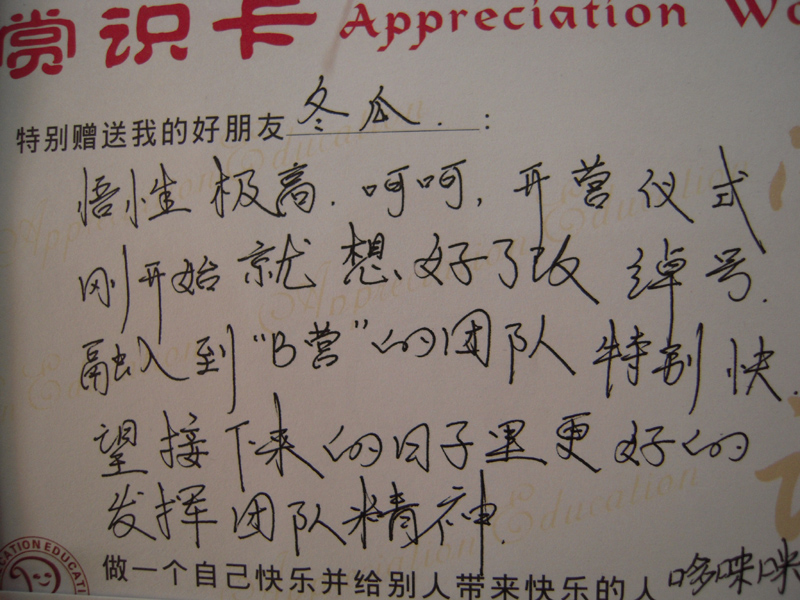 赏识卡 Appreciation Wo
特别赠送我的好朋友冬瓜.:
悟性极高.呵呵,开营仪式
刚开始就想好了改绰号.
融入到“B营”的团队特别快.
望接下来的日子里更好的
发挥团队精神.
做一个自己快乐并给别人带来快乐的人 哆唻咪